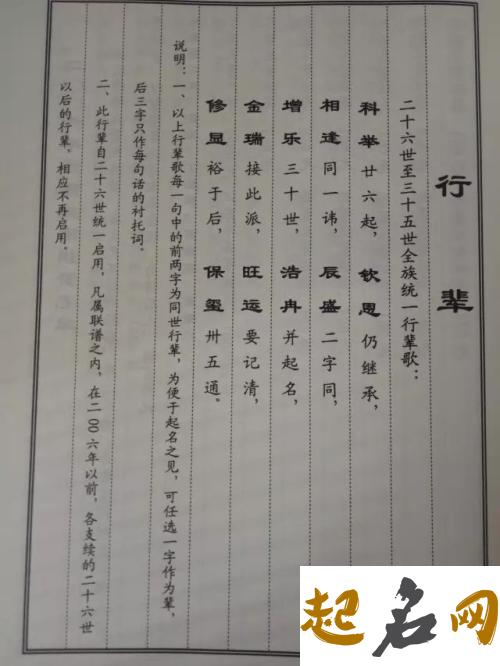 行辈
二十六世至三十五世全族统一行辈歌：
科举廿六起，钦恩仍继承，
相逢同一讳，辰盛二字同，
增乐三十世，浩冉并起名，
金瑞接此派，旺运要记清，
修显裕于后，保玺卅五通。
说明：一、以上行辈歌每一句中的前两字为同世行辈，为便于起名之见，可任选一字作为辈，
后三字只作每句话的衬托词。
二、此行辈自二十六世统一启用，凡属联谱之内，在二00六年以前，各支续的二十六世
以后的行辈，相应不再启用。
起名网